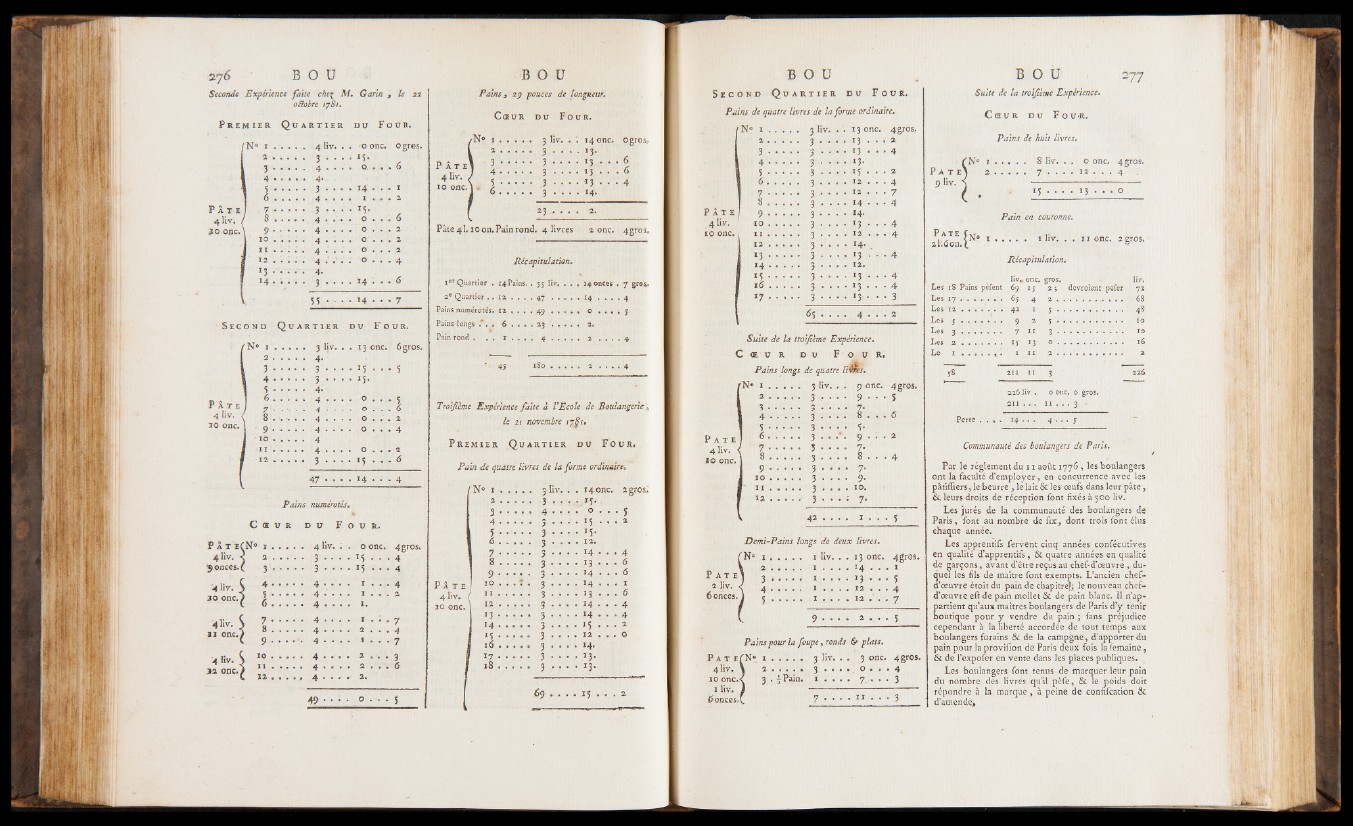 276 BOU
Seconde Expérience faite chez M. Garin, le 22
octobre 1781.
PREMIER QUARTIER DU FOUR.
PATE 4 liv. 10 onc.
N° 1 . . . . . 4 liv. . . 0 onc. 0 gros.
2 . . . . . 3 . . . . 15.
3 . . . . . 4 . . . . 0 . . . 6
4 . . . . . 4.
5 . . . . . 3 . . . . 14 . . . 1
6 . . . . . 4 . . . . 1 . . . 2
7 . . . . . 3 . . . . 15.
8 . . . . . 4 . . . . 0 . . . 6
9 . . . . . 4 . . . . 0 . . . 2
10 . . . . . 4 . . . . 0 . . . 2
11 . . . . . 4 . . . . 0 . . . 2
12 . . . . . 4 . . . . 0 . . . 4
13 . . . . . 4.
14 . . . . . 3 . . . . 14 . . . 6
55 . . . . 14 . . . 7
SECOND QUARTIER DU FOUR.
PATE 4 liv. 10 onc.
N° 1 . . . . . 3 liv. . . 13 onc. 6 gros.
2 . . . . . 4.
3 . . . . . 3 . . . . 15 . . . 5
4 . . . . . 3 . . . . 15.
5 . . . . . 4.
6 . . . . . 4 . . . . 0 . . . 5
7 . . . . . 4 . . . . 0 . . . 6
8 . . . . . 4 . . . . 0 . . . 2
9 . . . . . 4 . . . . 0 . . . 4
10 . . . . . 4
11 . . . . . 4 . . . . 0 . . . 2
12 . . . . . 3 . . . . 15 . . . 6
47 . . . . 14 . . . 4
Pains numérotés.
CŒUR DU FOUR.
PATE 4 liv. 9 onces.
N° 1 . . . . . 4 liv. . . 0 onc. 4 gros.
2 . . . . . 3 . . . . 15 . . . 4
3 . . . . . 3 . . . . 15 . . . 4
4 liv. 10 onc.
4 . . . . . 4 . . . . 1 . . . 4
5 . . . . . 4 . . . . 1 . . . 2
6 . . . . . 4 . . . . 1.
4 liv. 11 onc.
7 . . . . . 4 . . . . 1 . . . 7
8 . . . . . 4 . . . . 2 . . . 4
9 . . . . . 4 . . . . 1 . . . 7
4 liv. 12 onc.
10 . . . . . 4 . . . . 2 . . . 3
11 . . . . . 4 . . . . 2 . . . 6
12 . . . . . 4 . . . . 2.
49 . . . . 0 . . . 5
BOU
Pains, 29 pouces de longueur.
CŒUR DU FOUR.
PATE 4 liv. 10 onc.
N° 1 . . . . . 3 liv. . . 14 onc. 0 gros.
2 . . . . . 3 . . . . 13.
3 . . . . . 3 . . . . 13 . . . 6
4 . . . . . 3 . . . . 13 . . . 6
5 . . . . . 3 . . . . 13 . . . 4
6 . . . . . 3 . . . . 14.
23 . . . . 2.
Pâte 4 l. 10 on. Pain rond. 4 livres 2 onc. 4 gros.
Récapitulation.
1er Quartier . 14 Pains. . 55 liv. . . . 14 onces . 7 gros.
2e Quartier . . 12 . . . . 47 . . . . . 14 . . . . 4
Pains numérotés. 12 . . . . 49 . . . . . 0 . . . . 5
Pains longs . . . 6 . . . . 23 . . . . . 2.
Pain rond . . . 1 . . . . 4 . . . . . 2 . . . . 4
45 180 . . . . . 2 . . . . 4
Troisième Expérience faite à l'Ecole de Boulangerie,
le 21 novembre 1781.
PREMIER QUARTIER DU FOUR.
Pain de quatre livres de la forme ordinaire.
PATE 4 liv. 10 onc.
N° 1 . . . . . 3 liv. . . 14 onc. 2 gros.
2 . . . . . 3 . . . . 15.
3 . . . . . 4 . . . . 0 . . . 5
4 . . . . . 3 . . . . 15 . . . 2
5 . . . . . 3 . . . . 15.
6 . . . . . 3 . . . . 12.
7 . . . . . 3 . . . . 14 . . . 4
8 . . . . . 3 . . . . 13 . . . 6
9 . . . . . 3 . . . . 14 . . . 6
10 . . . . . 3 . . . . 14 . . . 1
11 . . . . . 3 . . . . 13 . . . 6
12 . . . . . 3 . . . . 14 . . . 4
13 . . . . . 3 . . . . 14 . . . 4
14 . . . . . 3 . . . . 15 . . . 2
15 . . . . . 3 . . . . 12 . . . 0
16 . . . . . 3 . . . . 14.
17 . . . . . 3 . . . . 13.
18 . . . . . 3 . . . . 13.
69 . . . . 15 . . . 2
BOU
SECOND QUARTIER DU FOUR.
Pains de quatre livres de la forme ordinaire.
PATE 4 liv. 10 onc.
N° 1 . . . . . 3 liv. . . 13 onc. 4 gros.
2 . . . . . 3 . . . . 13 . . . 2
3 . . . . . 3 . . . . 13 . . . 4
4 . . . . . 3 . . . . 13.
5 . . . . . 3 . . . . 15 . . . 2
6 . . . . . 3 . . . . 12 . . . 4
7 . . . . . 3 . . . . 12 . . . 7
8 . . . . . 3 . . . . 14 . . . 4
9 . . . . . 3 . . . . 14.
10 . . . . . 3 . . . . 13 . . . 4
11 . . . . . 3 . . . . 12 . . . 4
12 . . . . . 3 . . . . 14.
13 . . . . . 3 . . . . 13 . . . 4
14 . . . . . 3 . . . . 12.
15 . . . . . 3 . . . . 13 . . . 4
16 . . . . . 3 . . . . 13 . . . 4
17 . . . . . 3 . . . . 13 . . . 3
65 . . . . 4 . . . 2
Suite de la troisième Expérience.
CŒUR DU FOUR.
Pains longs de quatre livres.
PATE 4 liv. 10 onc.
N° 1 . . . . . 3 liv. . . 9 onc. 4 gros.
2 . . . . . 3 . . . . 9 . . . 5
3 . . . . . 3 . . . . 7.
4 . . . . . 3 . . . . 8 . . . 6
5 . . . . . 3 . . . . 5.
6 . . . . . 3 . . . . 9 . . . 2
7 . . . . . 3 . . . . 7.
8 . . . . . 3 . . . . 8 . . . 4
9 . . . . . 3 . . . . 7.
10 . . . . . 3 . . . . 9.
11 . . . . . 3 . . . . 10.
12 . . . . . 3 . . . . 7.
42 . . . . 1 . . . 5
Demi-Pains longs de deux livres.
PATE 2 liv. 6 onces.
N° 1 . . . . . 1 liv. . . 13 onc. 4 gros.
2 . . . . . 1 . . . . 14 . . . 1
3 . . . . . 1 . . . . 13 . . . 5
4 . . . . . 1 . . . . 12 . . . 4
5 . . . . . 1 . . . . 12 . . . 7
9 . . . . 2 . . . 5
Pains pour la soupe, ronds & plats.
PATE 4 liv. 10 onc. 1 liv. 6 onces.
N° 1 . . . . . 3 liv. . . 3 onc. 4 gros.
2 . . . . . 3 . . . . 0 . . . 4
3 . ½ Pain. 1 . . . . 7 . . . 3
7 . . . . 11 . . . 3
BOU 277
Suite de la troisième Expérience.
CŒUR DU FOUR.
Pains de huit livres.
PATE 9 liv.
N° 1 . . . . . 8 liv. . . 0 onc. 4 gros.
2 . . . . . 7 . . . . 12 . . . 4
15 . . . . 13 . . . 0
Pain en couronne.
PATE 2 l. 6 on. N° 1 . . . . . 1 liv. . . 11 onc. 2 gros.
Récapitulation.
liv. onc. gros. liv.
Les 18 Pains pèsent 69 15 2; devroient peser 72
Les 17 . . . . . . . 65 4 2 . . . . . . . . . . . 68
Les 12 . . . . . . . 42 1 5 . . . . . . . . . . . 48
Les 5 . . . . . . . 9 2 5 . . . . . . . . . . . 10
Les 3 . . . . . . . 7 11 3 . . . . . . . . . . . 10
Les 2 . . . . . . . 15 13 0 . . . . . . . . . . . 16
Le 1 . . . . . . . 1 11 2 . . . . . . . . . . . 2
58 211 11 3 226
226 liv . 0 onc. 0 gros.
211 . . . 11 . . . 3
Perte . . . . 14 . . . 4 . . . 5
Communauté des boulangers de Paris.
Par le réglement du 11 août 1776, les boulangers
ont la faculté d'employer, en concurrence avec les
pâtissiers, le beurre, le lait & les œufs dans leur pâte,
& leurs droits de réception sont fixés à 500 liv.
Les jurés de la communauté des boulangers de
Paris, sont au nombre de six, dont trois sont élus
chaque année.
Les apprentifs servent cinq années consécutives
en qualité d'apprentifs, & quatre années en qualité
de garçons, avant d'être reçus au chef-d'œuvre, du-
quel les fils de maître sont exempts. L'ancien chef-
d'œuvre étoit du pain de chapitre; le nouveau chef-
d'œuvre est de pain mollet & de pain blanc. Il n'ap-
partient qu'aux maîtres boulangers de Paris d'y tenir
boutique pour y vendre du pain; sans préjudice
cependant à la liberté accordée de tout temps aux
boulangers forains & de la campgne, d'apporter du
pain pour la provision de Paris deux fois la semaine,
& de l'exposer en vente dans les places publiques.
Les boulangers sont tenus de marquer leur pain
du nombre des livres qu'il pèse, & le poids doit
répondre à la marque, à peine de confiscation &
d'amende.